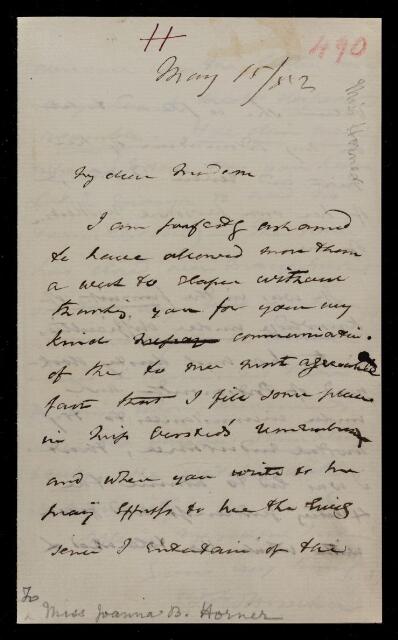 H
490
May 15/52
Miss Horner
My dear Madam
I am perfectly ashamed
to have allowed more than
a week to elapse without
thanking you for your very
kind communication
of the to me most agreeable
fact that I fill some place
in Miss remembrance
and when you write to her
pray express to her the lively
sense I entertain of the
To
Miss Joanna B. Horner